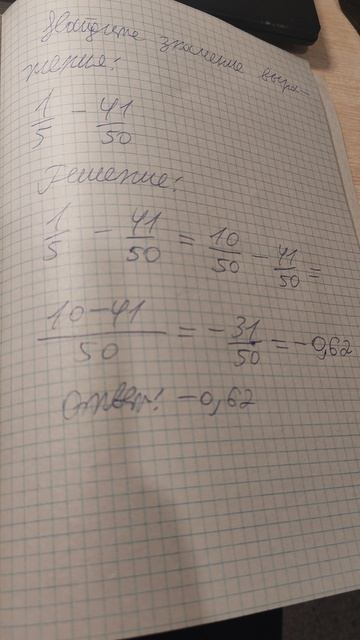 Найдите значение выра-
жения:
1/5 - 41/50
Решение:
1/5 - 41/50 = 10/50 - 41/50 =
10-41/50 = -31/50 = -0,62
Ответ: -0,62